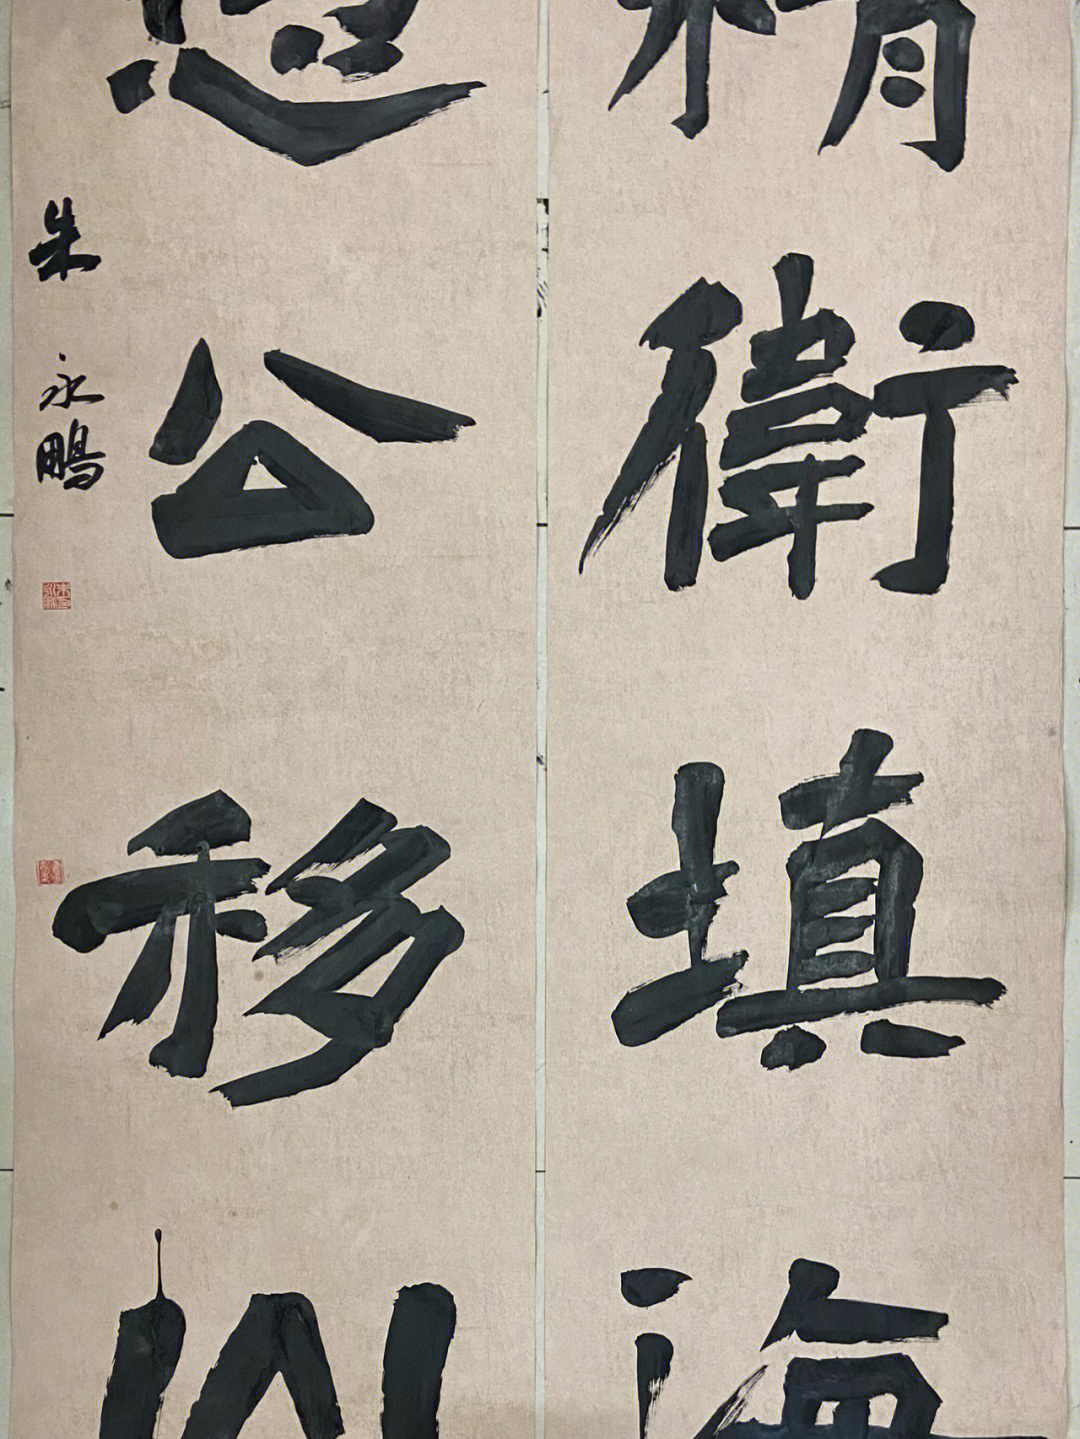 精衛填海
愚公移山
朱永鵬